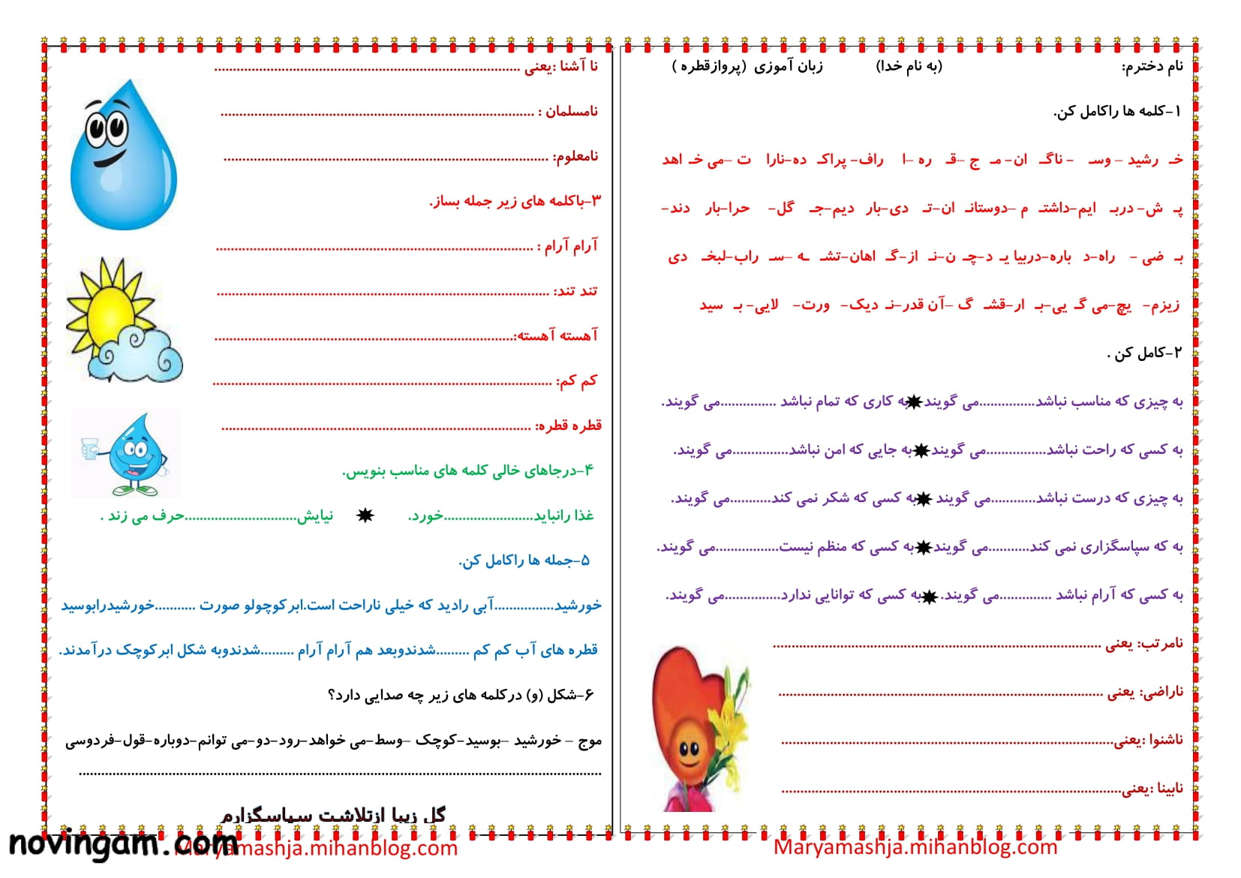 نام دخترم: (به نام خدا) زبان آموزی (پروازقطره )
۱-کلمه ها راکامل کن.
خـ رشید – وسـ - ناگـ ان- مـ ج –قـ ره –ا راف- پراکـ ده-نارا ت –می خـ اهد
پـ ش- دربـ ایم-داشتـ م –دوستانـ ان-تـ دی-بار دیم-جـ گل- حرا-بار دند-
بـ ضی - راه-د باره-دربیا یـ د-چـ ن-نـ از-گـ اهان-تشـ ـه –سـ راب-لبخـ دی
زیزم- یچ-می گـ یی-بـ ار-قشـ گ –آن قدر-نـ دیک- ورت- لایی- بـ سید
۲-کامل کن .
به چیزی که مناسب نباشد...............می گویند به کاری که تمام نباشد ...............می گویند.
به کسی که راحت نباشد................می گویند به جایی که امن نباشد...............می گویند.
به چیزی که درست نباشد............می گویند به کسی که شکر نمی کند...........می گویند.
به که سپاسگزاری نمی کند...........می گویند به کسی که منظم نیست.................می گویند.
به کسی که آرام نباشد ..............می گویند. به کسی که توانایی ندارد...............می گویند.
نامرتب: یعنی ........................................................................................
ناراضی: یعنی .......................................................................................
ناشنوا :یعنی.........................................................................................
نابینا :یعنی...........................................................................................
Maryamashja.mihanblog.com
نا آشنا :یعنی ..................................................................................
نامسلمان : ....................................................................................
نامعلوم: .......................................................................................
۳-باکلمه های زیر جمله بساز.
آرام آرام : .....................................................................................
تند تند: .........................................................................................
آهسته آهسته:................................................................................
کم کم: ...........................................................................................
قطره قطره: ...................................................................................
۴-درجاهای خالی کلمه های مناسب بنویس.
غذا رانباید........................خورد. نیایش..............................حرف می زند .
۵-جمله ها راکامل کن.
خورشید................آبی رادید که خیلی ناراحت است.ابرکوچولو صورت ...........خورشیدرابوسید
قطره های آب کم کم .........شدندوبعد هم آرام آرام .........شدندوبه شکل ابرکوچک درآمدند.
۶-شکل (و) درکلمه های زیر چه صدایی دارد؟
موج – خورشید –بوسید-کوچک –وسط-می خواهد-رود-دو-می توانم-دوباره-قول-فردوسی
............................................................................................................................................
گل زیبا ازتلاشت سپاسگزارم
Maryamashja.mihanblog.com
novingam.com